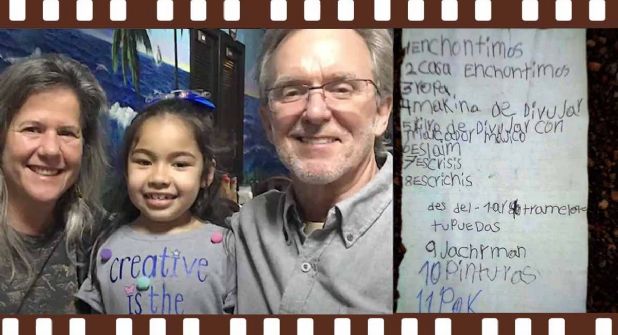 creative
is the
1 Enchontimos
2 casa Enchontimos
3 ropa
4 makina de Divujar
de Divujar con
majico
6 Eslaim
7 Escrisis
8 Escrichis
des del-
tu pueDas
9 Jachrman
10 Pinturas
11 Pok